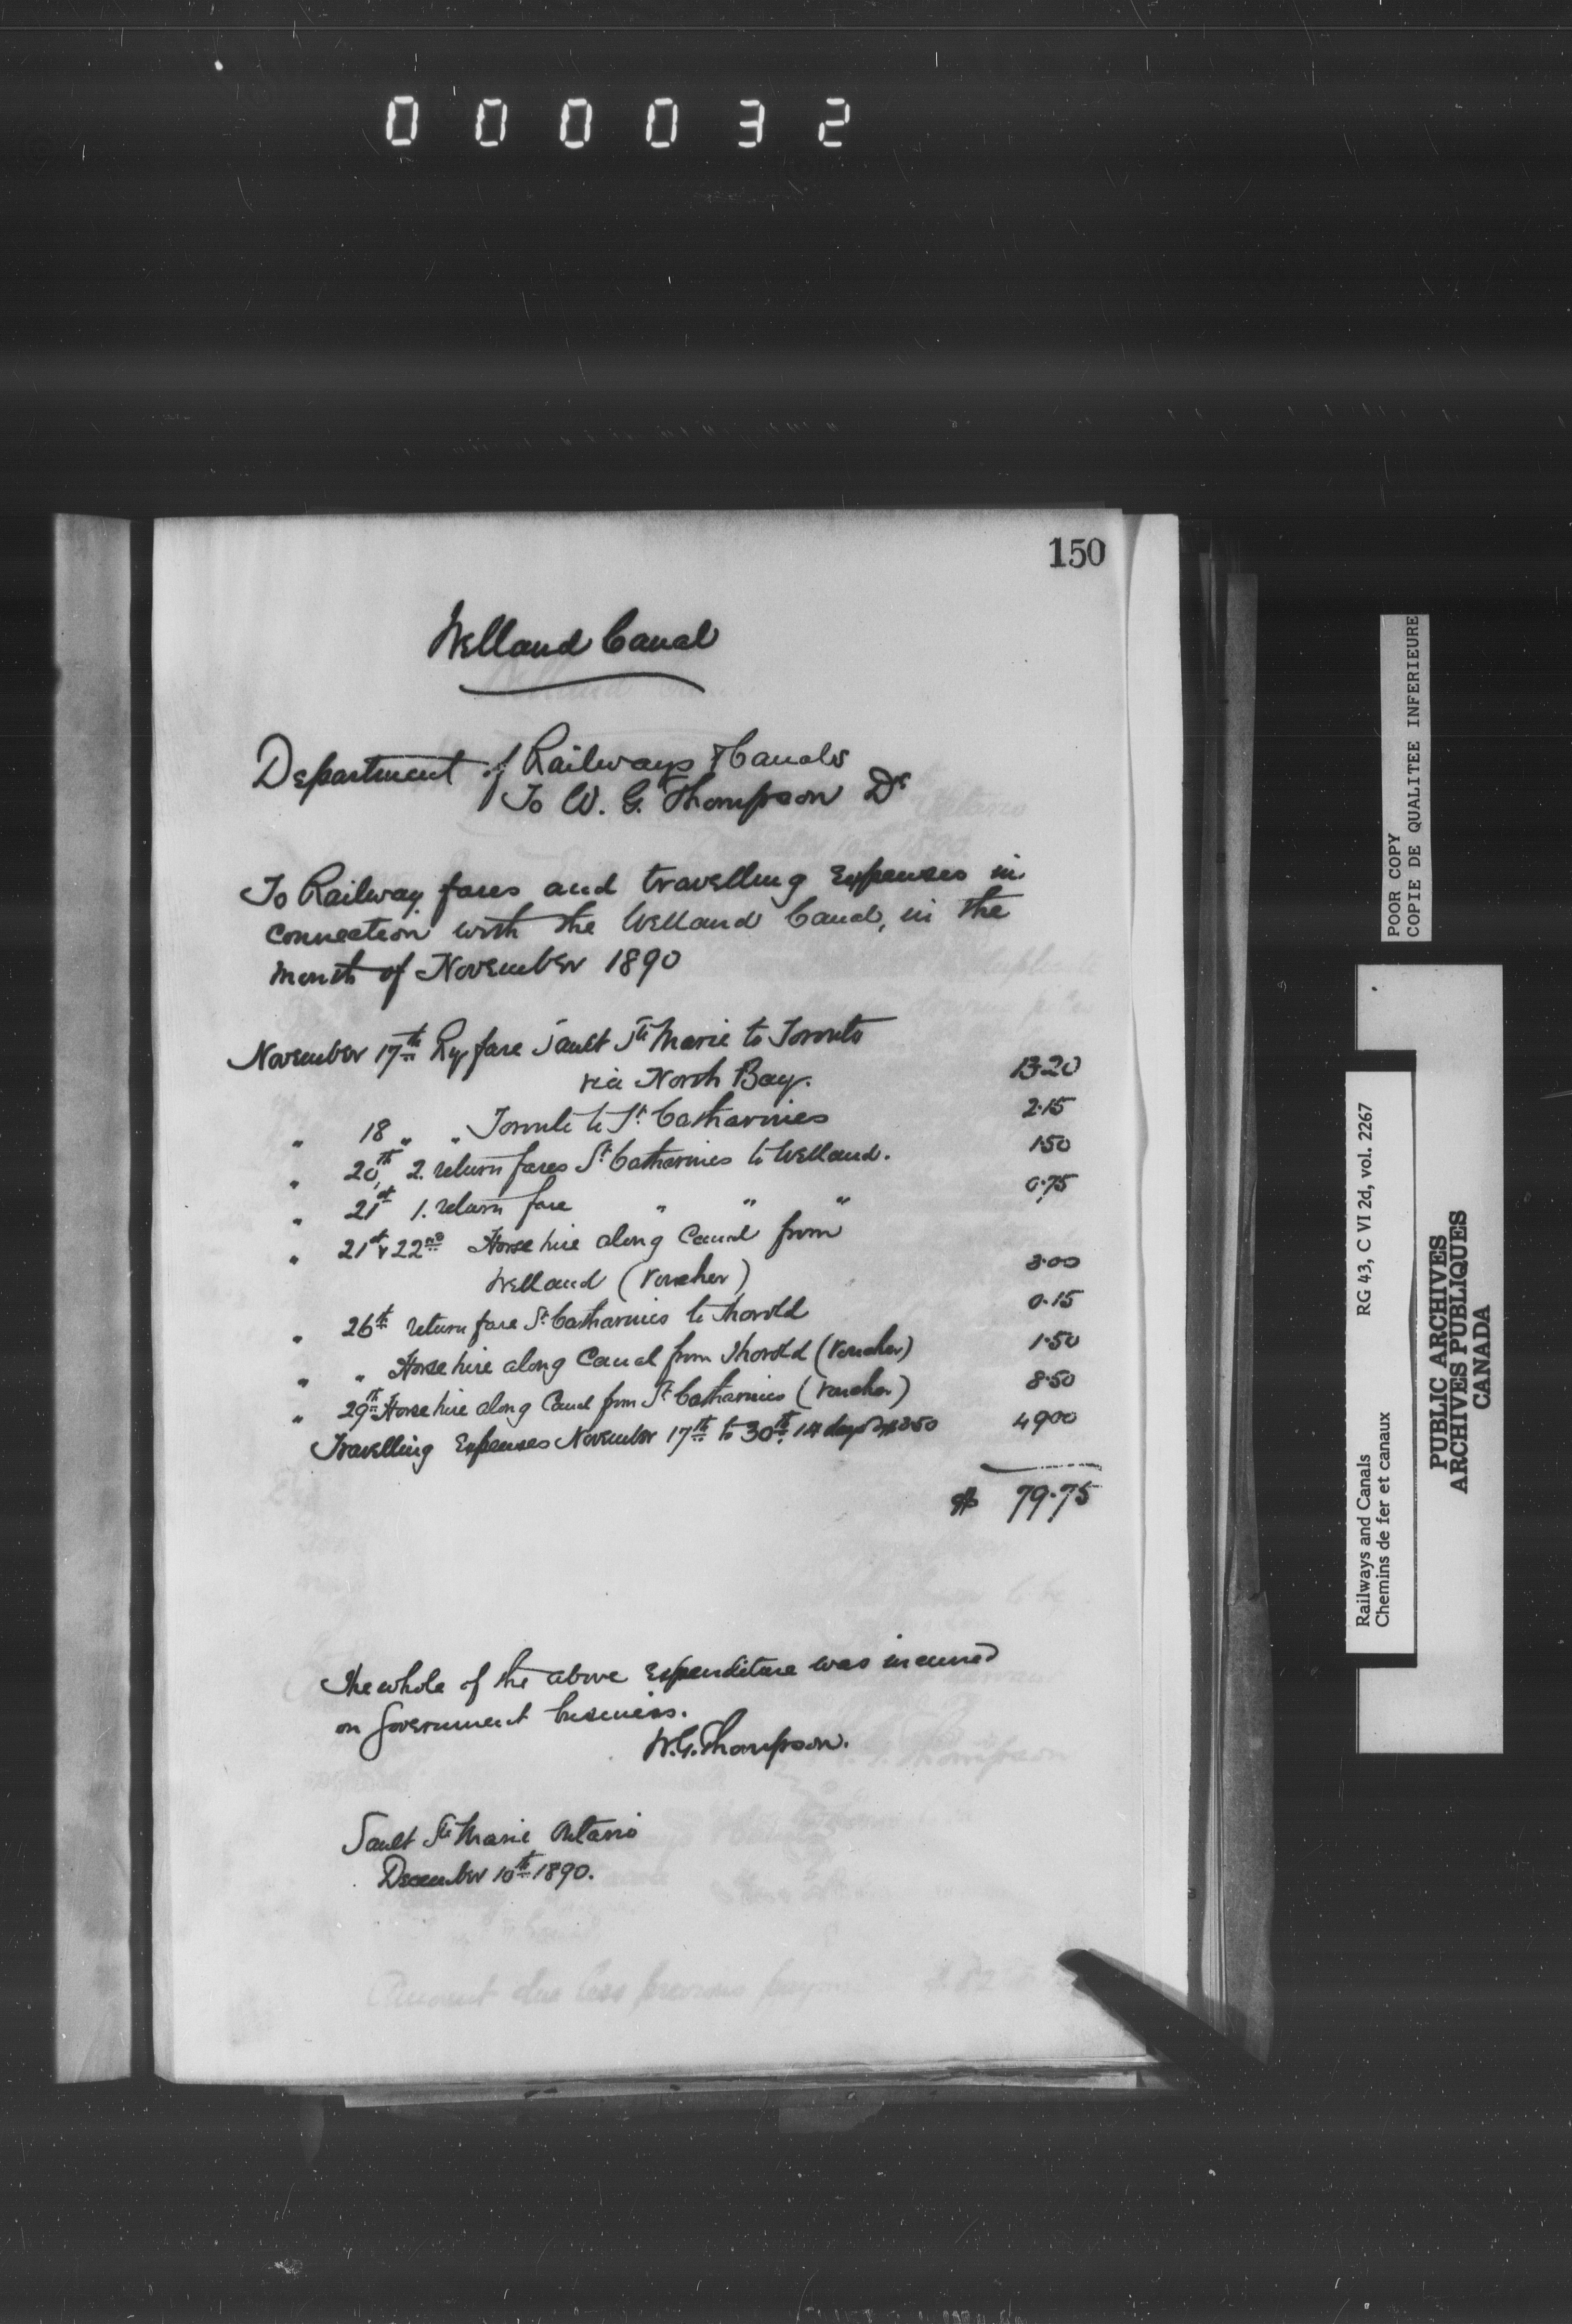 000032
150
Welland Canal
Department of Railways & Canals
To W. G. Thompson Dr
To Railway fares and travelling Expenses in
connection with the Welland Canal, in the
month of November 1890
November 17th Ry fare Sault Ste Marie to Toronto
via North Bay. 13.20
" 18 " " Toronto to St. Catharines 2.15
" 20th 2. return fares St Catharines to Welland. 1.50
" 21st 1. return fare " " " 0.75
" 21st & 22nd Horse hire along Canal from
Welland (Voucher) 3.00
" 26th return fare St. Catharines to Thorold 0.15
" " Horse hire along Canal from Thorold (Voucher) 1.50
" 29th Horse hire along Canal from St Catharines (Voucher) 8.50
Travelling Expenses November 17th to 30th 14 days @ $3.50 49.00
$ 79.75
The whole of the above Expenditure was incurred
on Government business.
W.G. Thompson.
Sault Ste Marie Ontario
December 10th 1890.
POOR COPY
COPIE DE QUALITEE INFERIEURE
Railways and Canals RG 43, C VI 2d, vol. 2267
Chemins de fer et canaux
PUBLIC ARCHIVES
ARCHIVES PUBLIQUES
CANADA